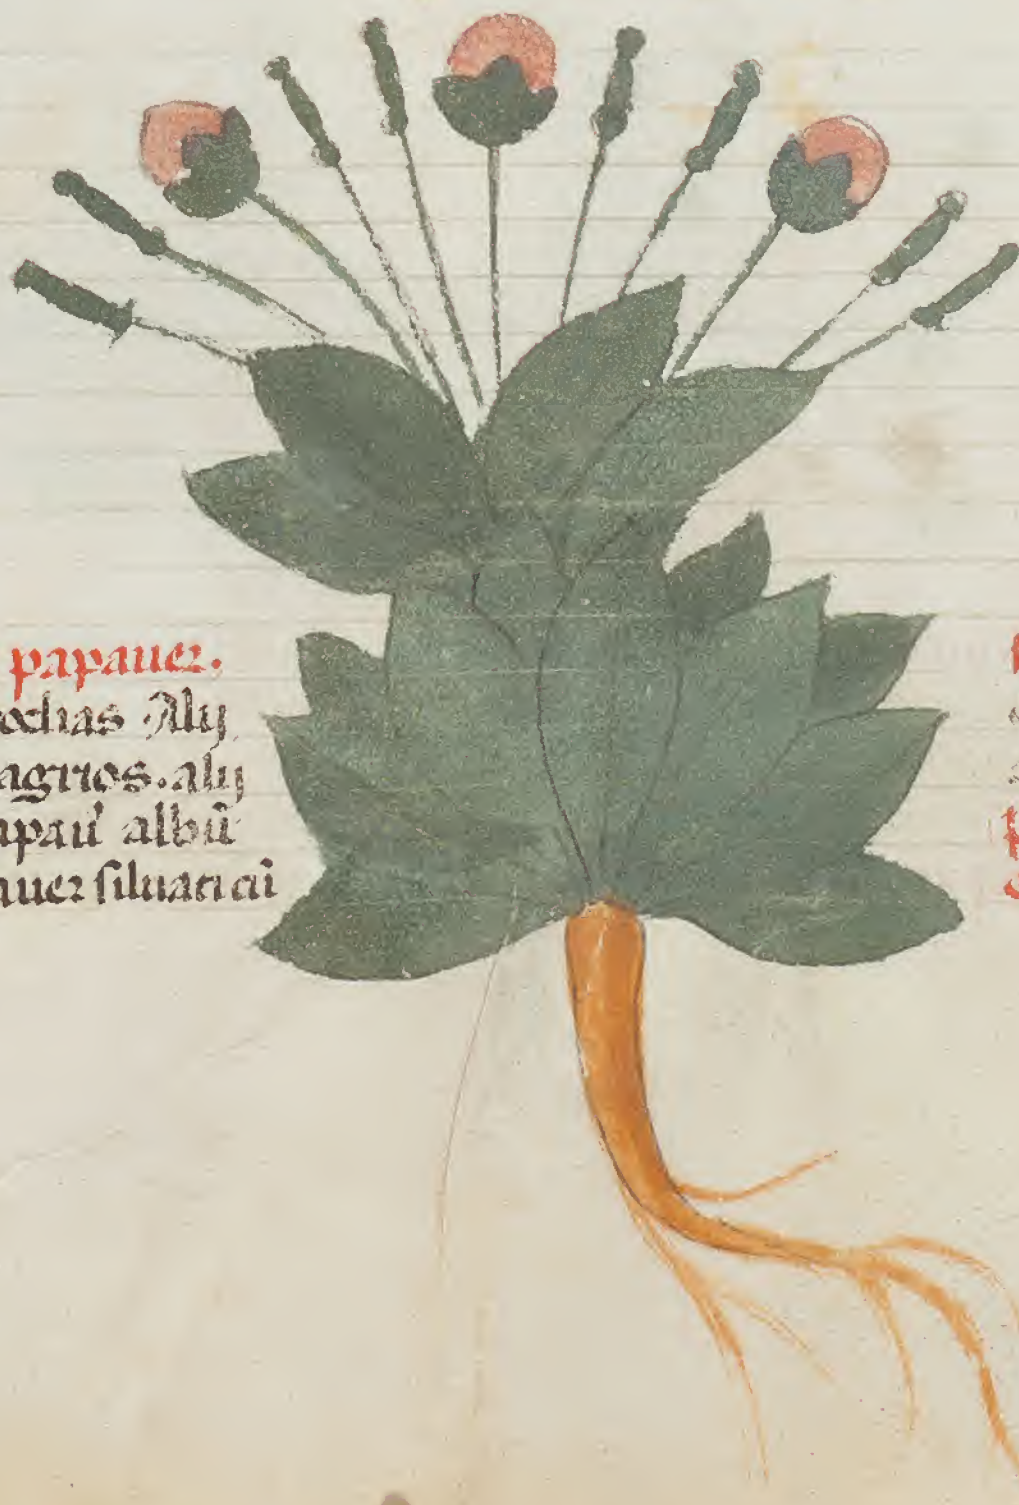 papauer.
ochas Alij
agrios. alij
apau' albū
uer siluaticū